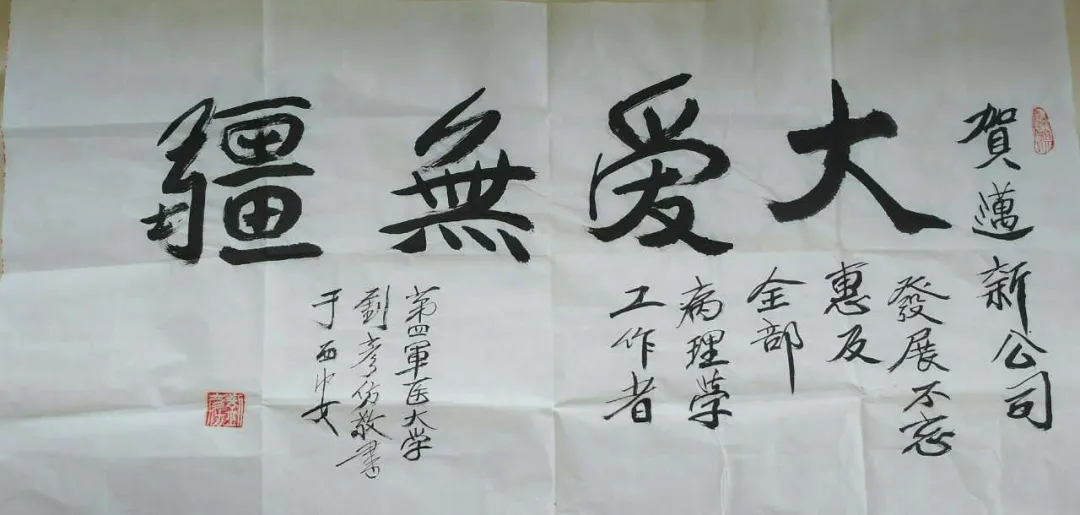 賀邁新公司
大愛無疆
發展不忘
惠及
全部
病理學
工作者
第四軍医大学
劉彥仿敬書
于西安